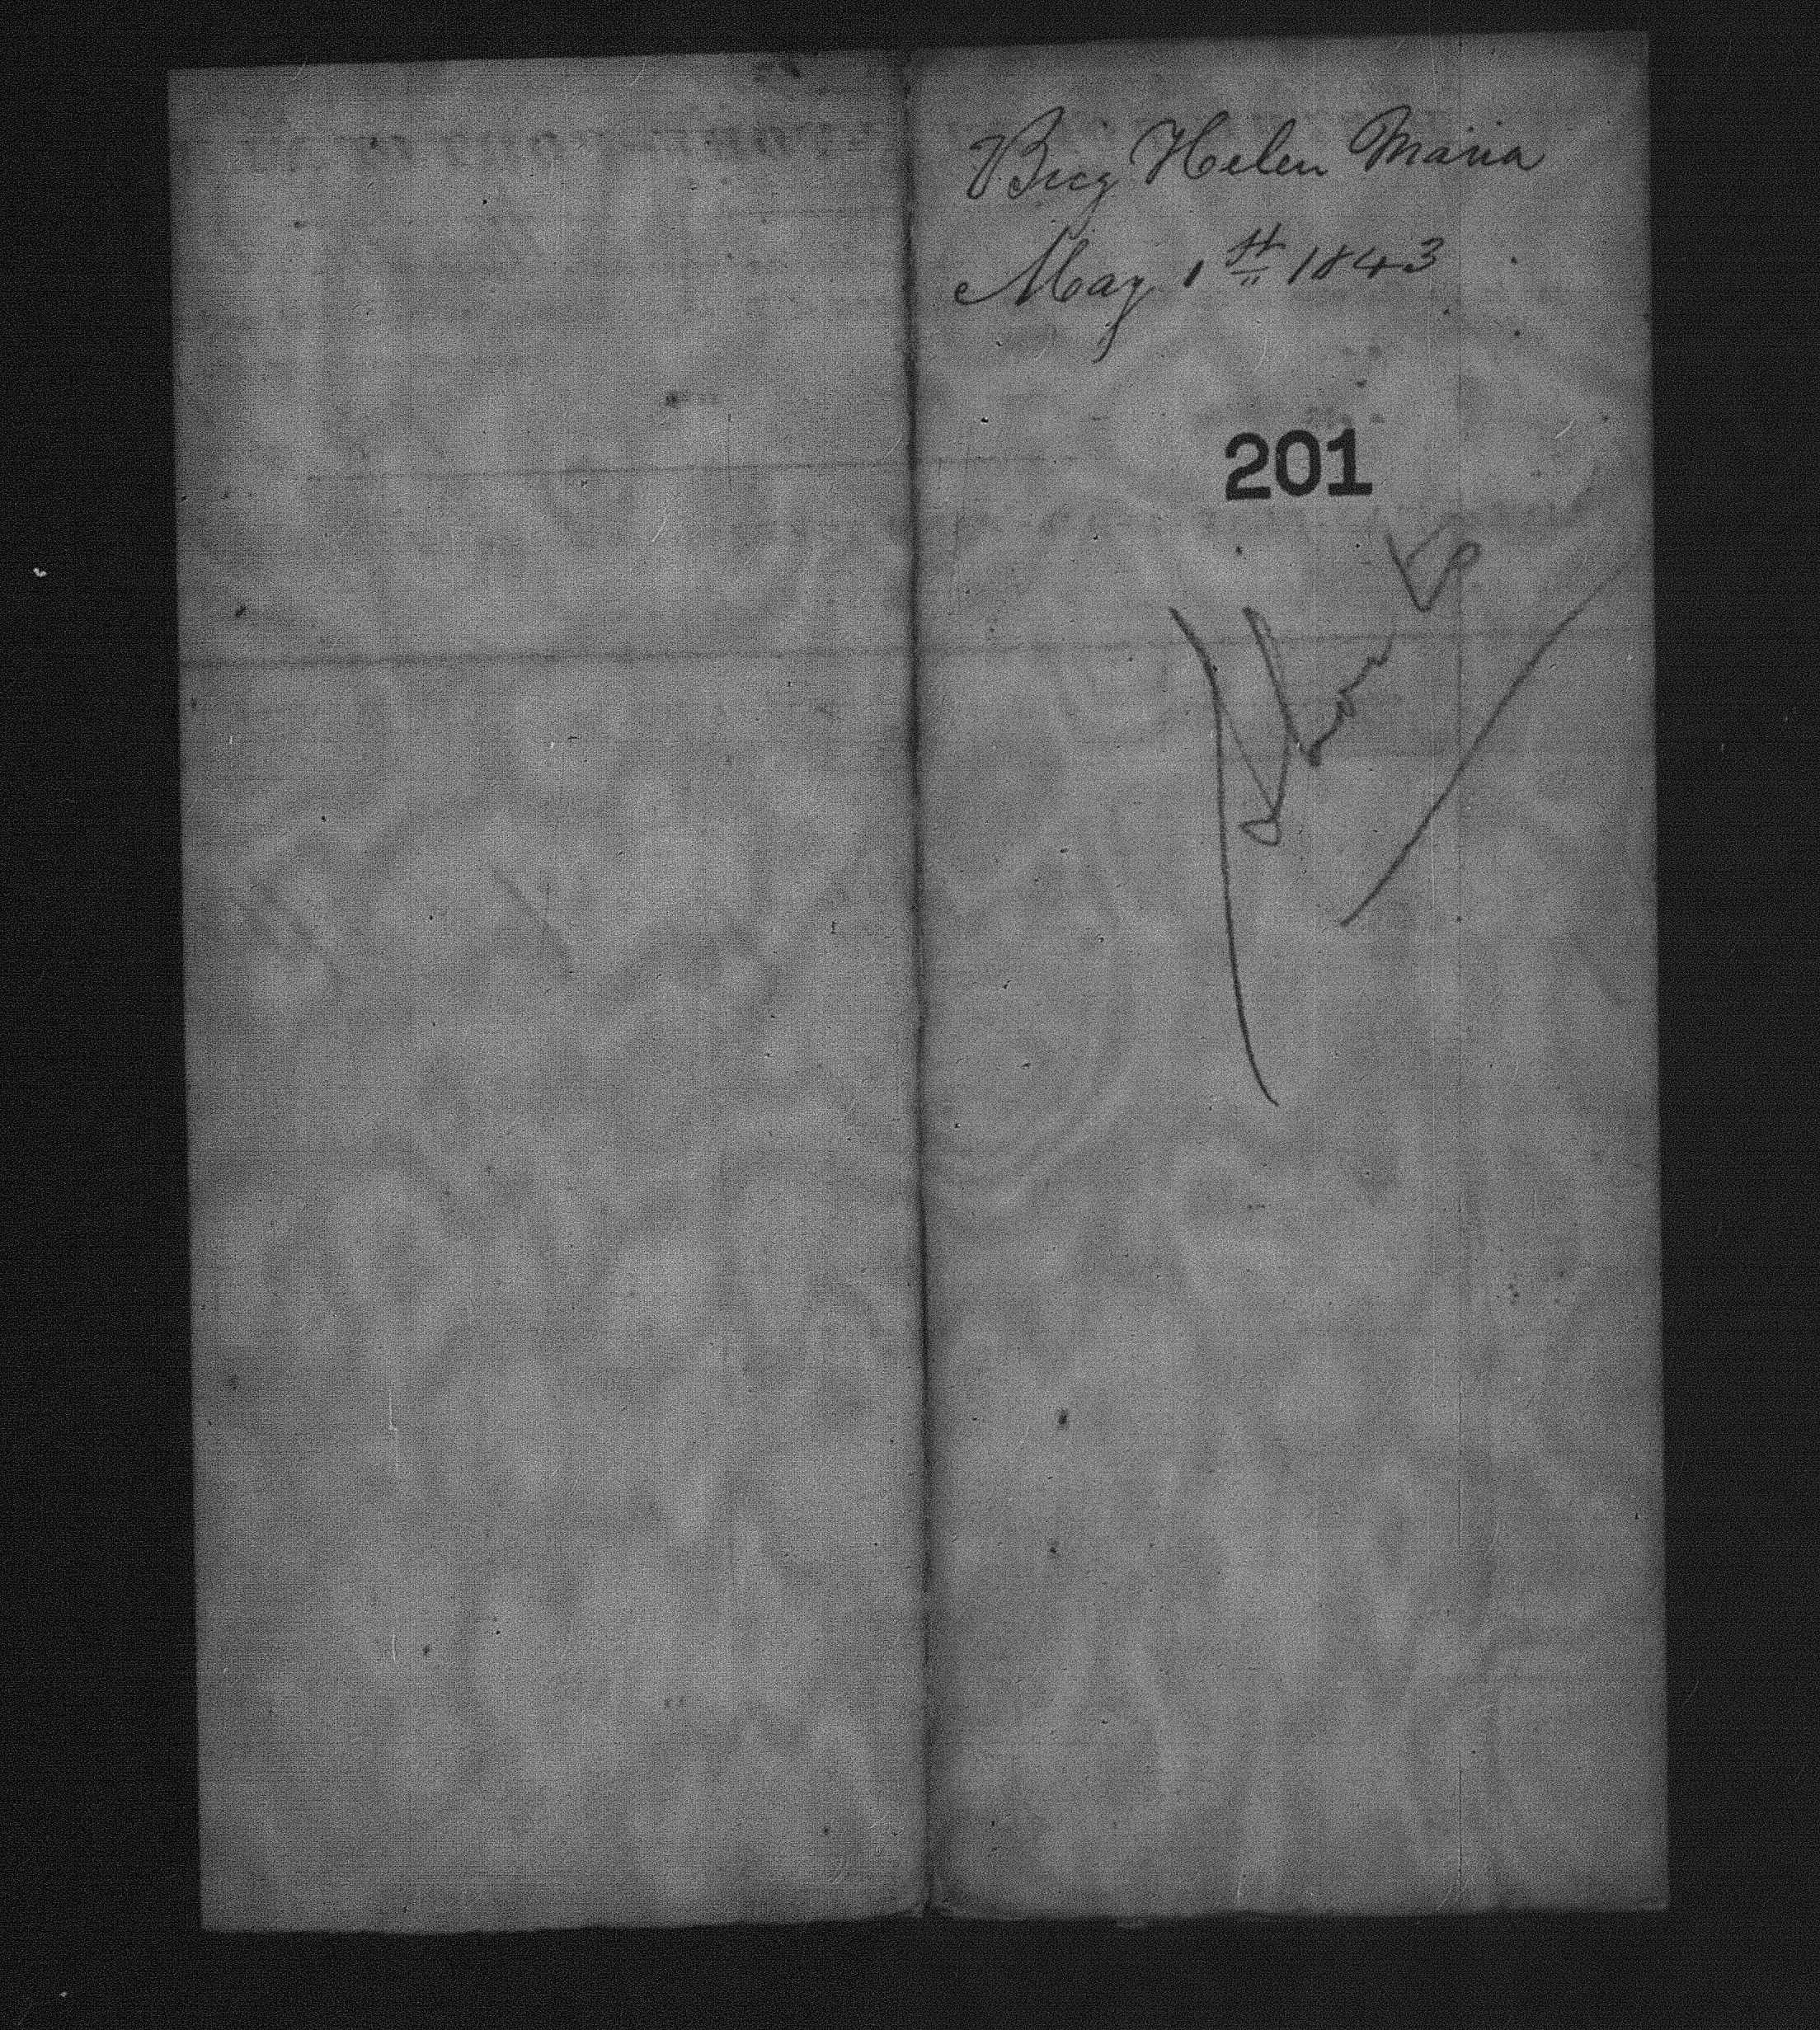 Brig Helen Maria
May 1st 1843
201